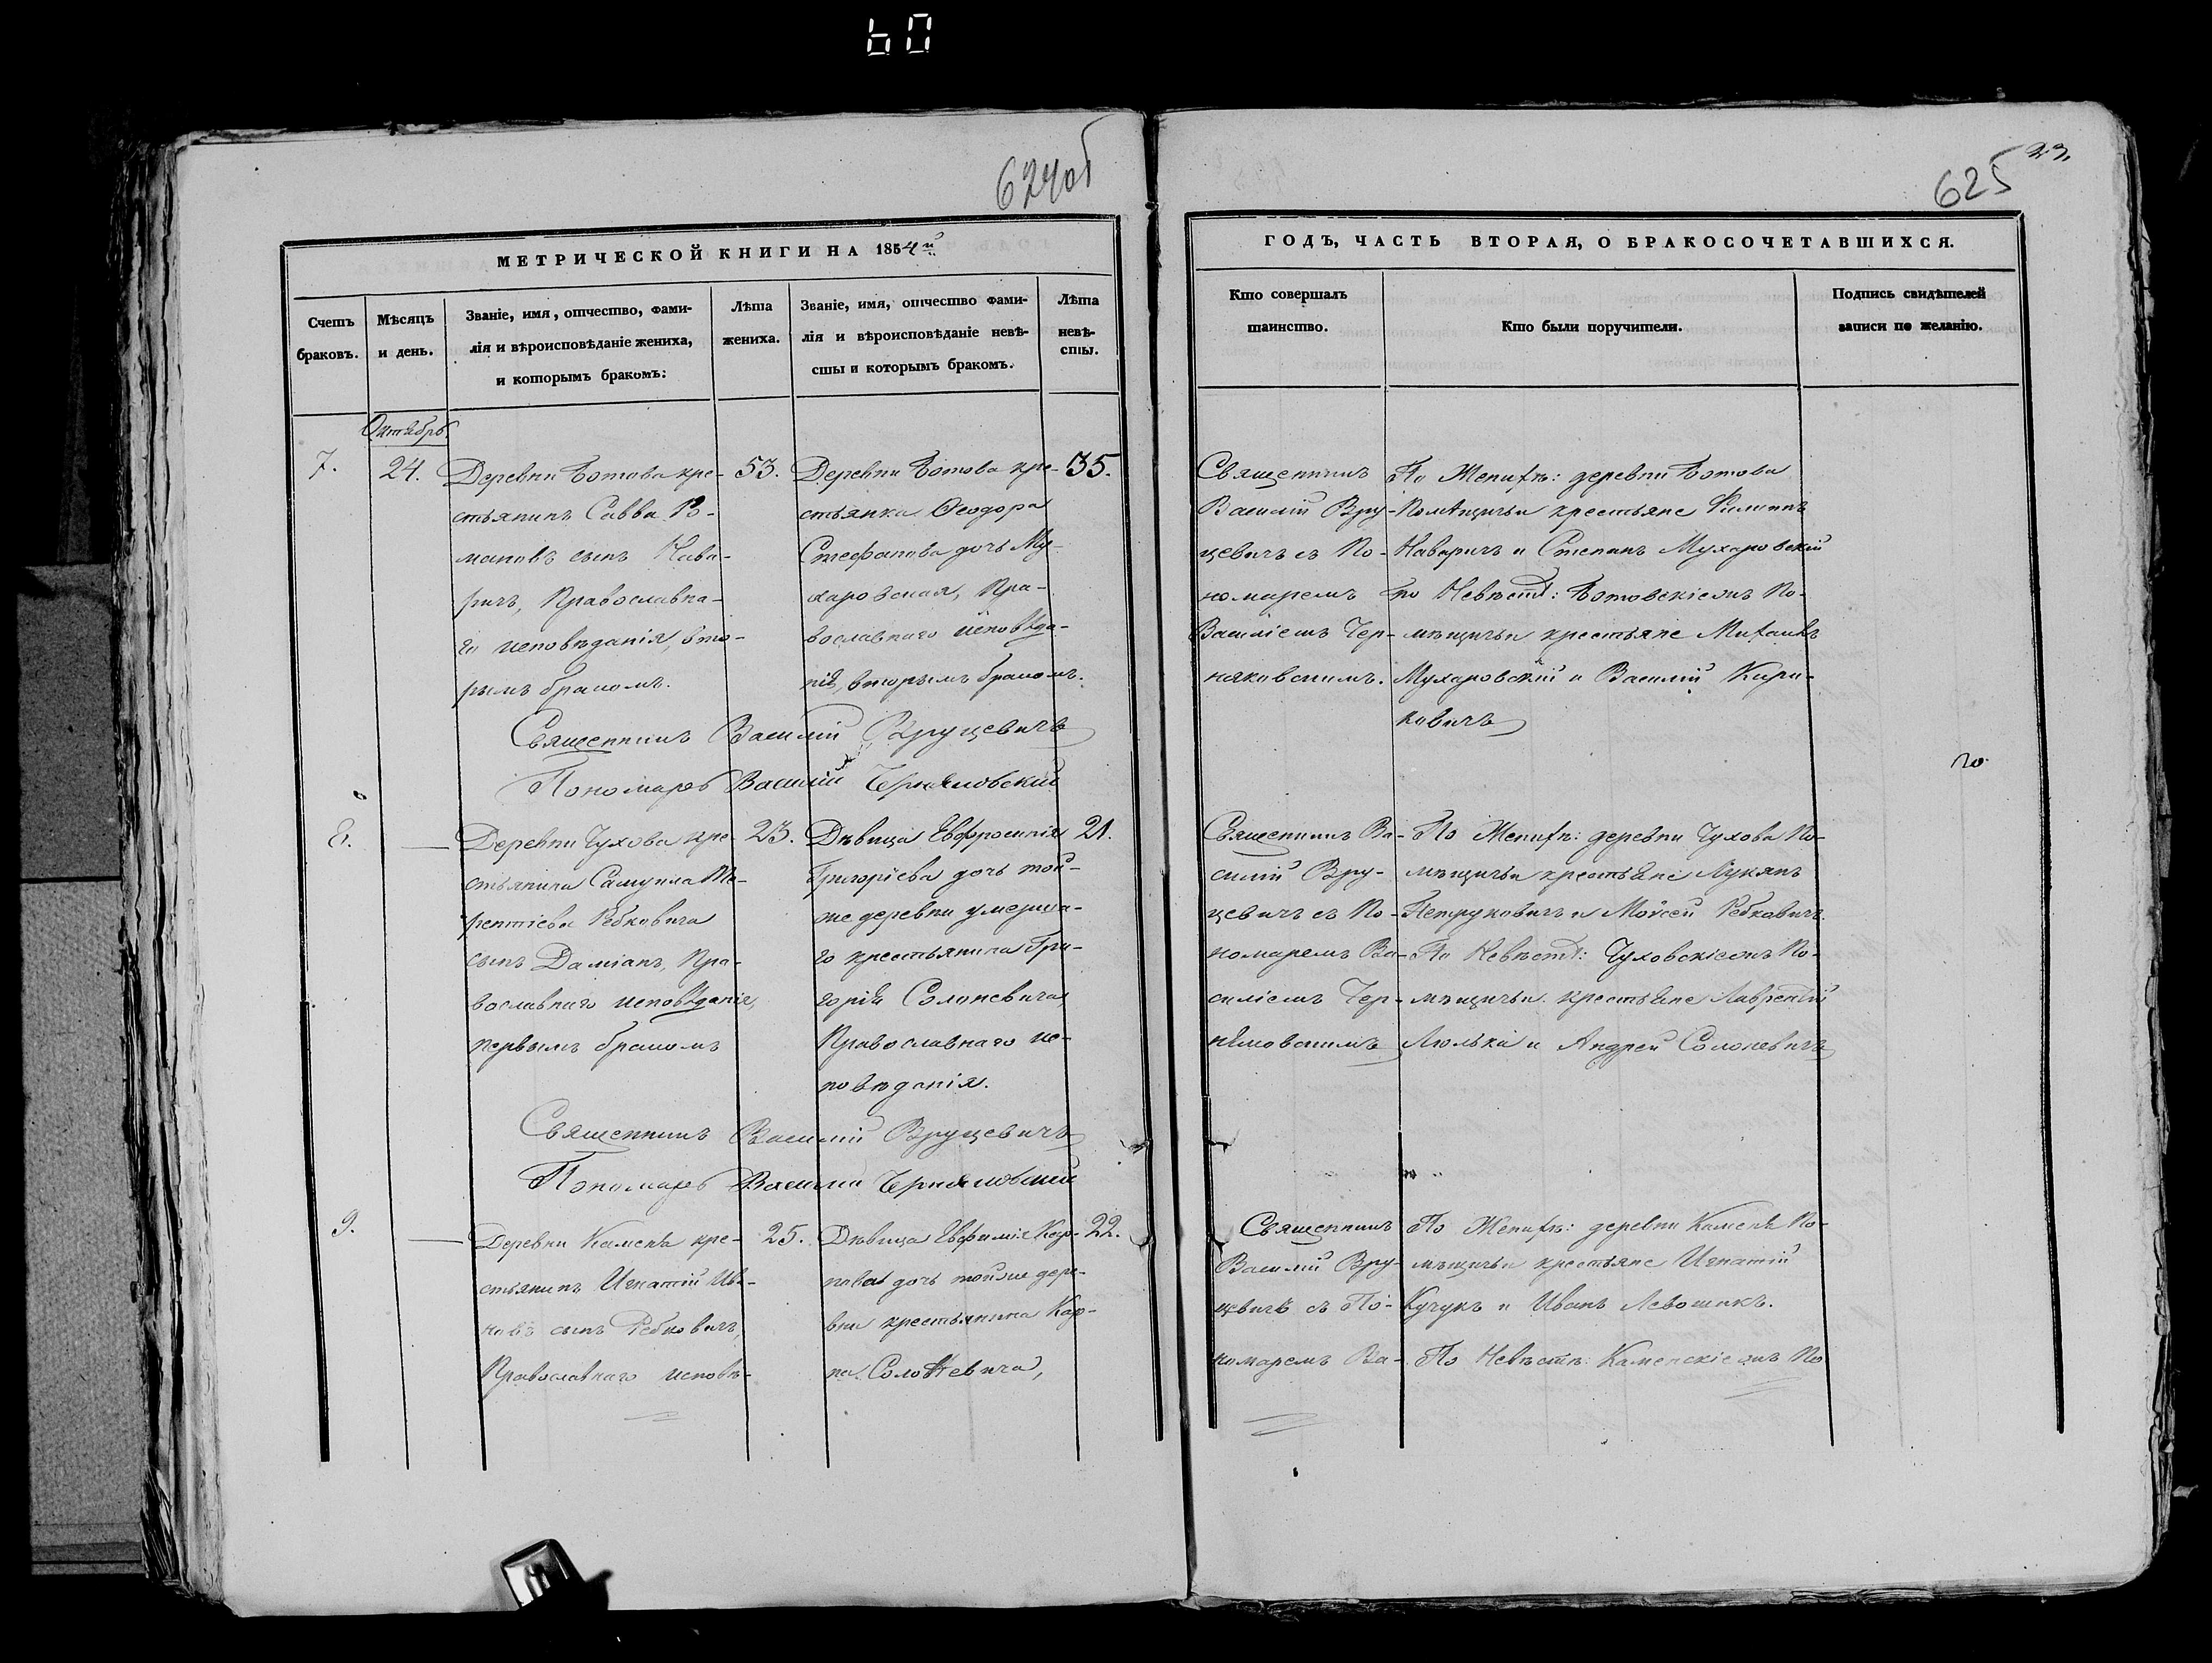 60
624об
625
23.
МЕТРИЧЕСКОЙ КНИГИ НА 1854й
ГОДЪ, ЧАСТЬ ВТОРАЯ, О БРАКОСОЧЕТАВШИХСЯ.
Счетъ
браковъ.
Мѣсяцъ
и день.
Званіе, имя, отчество, фами-
лія и вѣроисповѣданіе жениха,
и которымъ бракомъ:
Лѣта
жениха.
Званіе, имя, отчество фами-
лія и вѣроисповѣданіе невѣ-
сты и которымъ бракомъ.
Лѣта
невѣ-
сты.
Кто совершалъ
таинство.
Кто были поручители.
Подпись свидѣтелей
записи по желанію.
Октябрь.
7.
24.
Деревни Ботова кре-
стьянинъ Савва Ро-
мановъ сынъ Нава-
ричъ, Православна-
го исповѣданія, вто-
рымъ бракомъ.
53.
Деревни Ботова кре-
стьянка Ѳеодора
Стефанова дочь Му-
харовская, Пра-
вославнаго исповѣда-
нія, вторымъ бракомъ.
35.
Священникъ
Василій Вру-
цевичъ съ По-
номаремъ
Василіемъ Чер-
няковскимъ.
По Женихѣ: деревни Ботова
Помѣщичьи крестьяне Филиппъ
Наваричъ и Степанъ Мухаровскій
по Невѣстѣ: Ботовскіе онъ По-
мѣщичьи крестьяне Михаилъ
Мухаровскій и Василій Кири-
ковичъ
Священникъ Василій Вруцевичъ
Пономарь Василій Черняковскій
8.
Деревни Чухова кре-
стьянина Самуила Те-
рентіева Рабковича
сынъ Даміанъ, Пра-
вославнаго исповѣданія,
первымъ бракомъ
23.
Дѣвица Евфросинія
Григоріева дочь той-
же деревни умерша-
го крестьянина Гри-
горія Солоневича,
Православнаго ис-
повѣданія.
21.
Священникъ Ва-
силій Вру-
цевичъ съ По-
номаремъ Ва-
силіемъ Чер-
няковскимъ
По Женихѣ: деревни Чухова По-
мѣщичьи крестьяне Лукянъ
Петруковичъ и Мойсей Рабковичъ.
По Невѣстѣ: Чуховскіе онъ По-
мѣщичьи крестьяне Лаврентій
Люлька и Андрей Солоневичъ
Священникъ Василій Вруцевичъ
Пономарь Василій Черняковскій
9.
Деревни Каменя кре-
стьянинъ Игнатій Ива-
новъ сынъ Рабковичъ,
Православнаго исповѣ-
25.
Дѣвица Евфимія Кар-
пова дочь тойже дере-
вни крестьянина Кар-
па Солоневича,
22.
Священникъ
Василій Вру-
цевичъ съ По-
номаремъ Ва-
По Женихѣ: деревни Каменя По-
мѣщичьи крестьяне Игнатій
Кучукъ и Иванъ Левошикъ.
По Невѣстѣ: Каменскіе онъ По